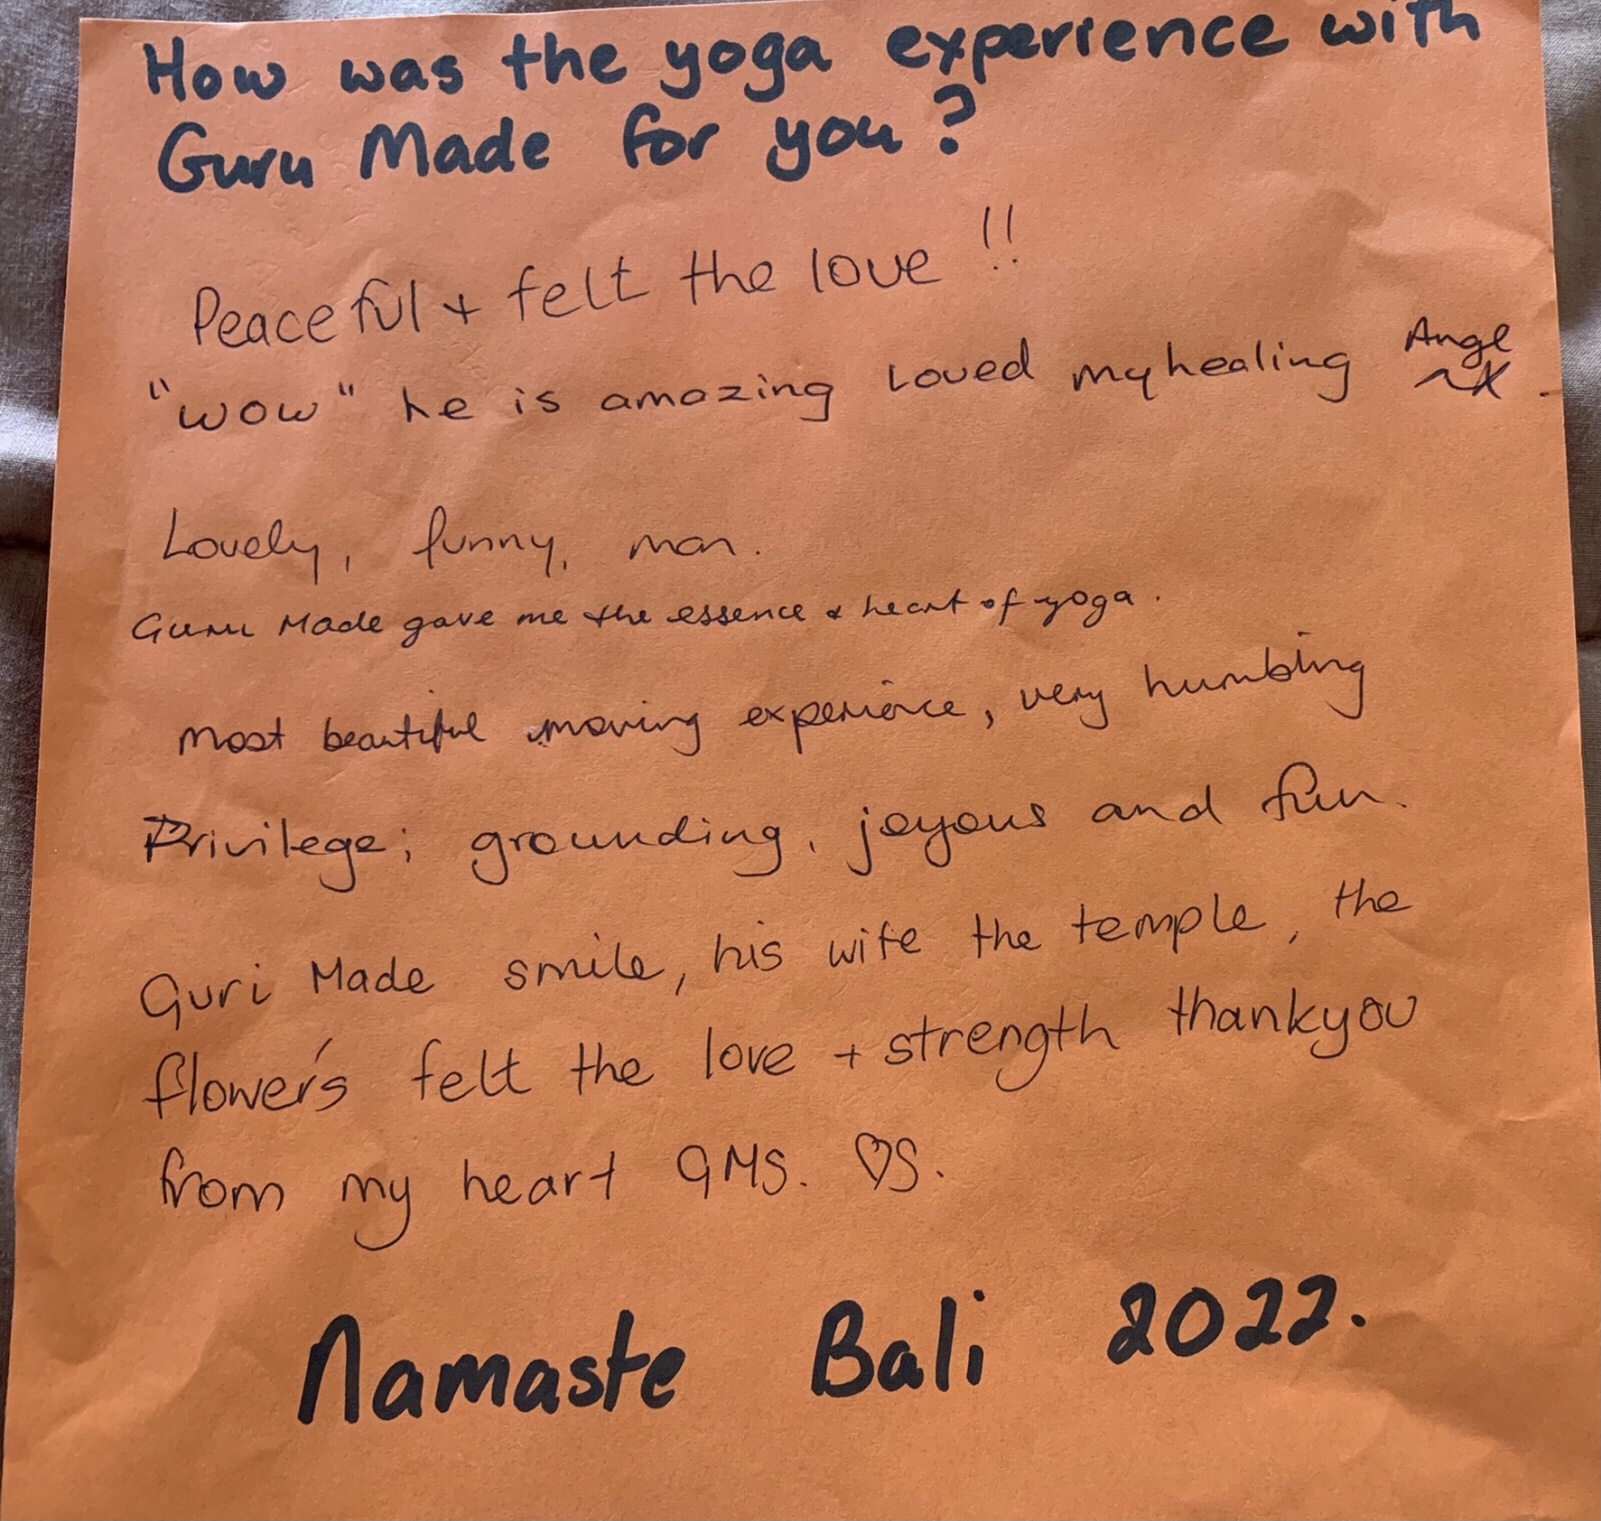 How was the yoga experience with
Guru Made for you?
Peaceful + felt the love !!
"wow" he is amazing Loved my healing Ange
x.
Lovely, funny, man.
Guru Made gave me the essence & heart of yoga.
most beautiful moving experience, very humbling
Privilege; grounding, joyous and fun.
Guri Made smile, his wife the temple, the
flower's felt the love + strength thankyou
from my heart GMS. ♡S.
Namaste Bali 2022.